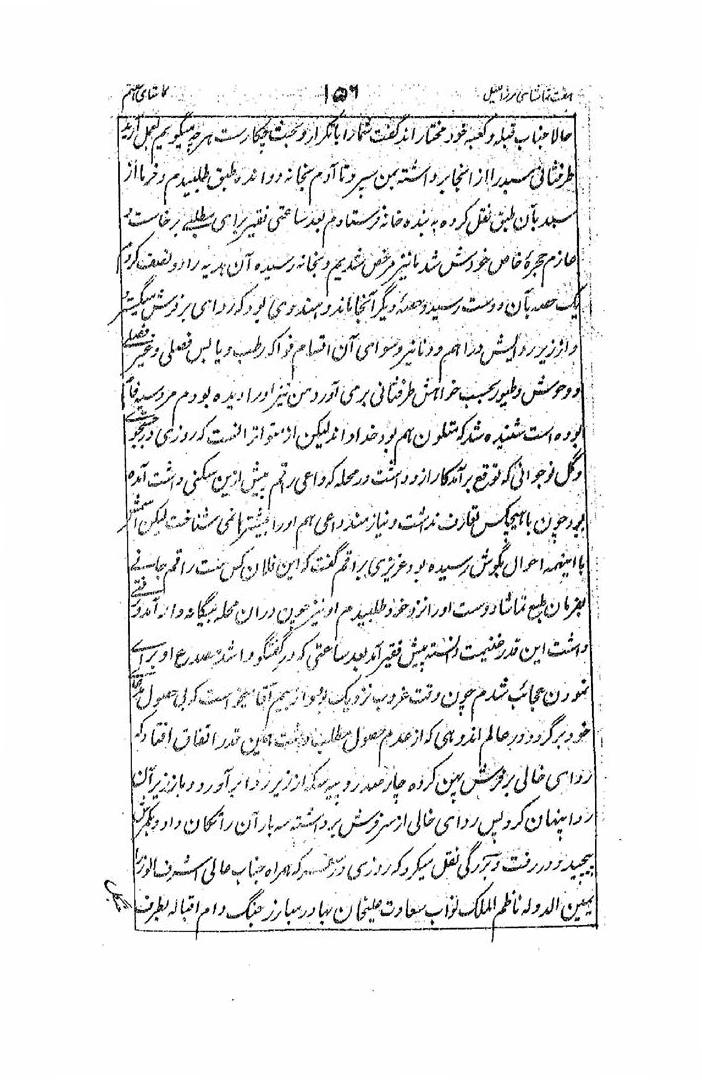 هفت تماشای مرزا قتیل ۱۵۶ تماشای هفتم
حالا جناب قبله و کعبه خود مختار اند گفت شما را با تکرار و بحث چکارست هر چه میگویم بعمل آرید
طرفثانی سبد را از آنجا برداشته بمن سپرد تا آدم بخانه دواند و طبق طلبیدم و خرما از
سبد بآن طبق نقل کرده به بنده خانه فرستادم بعد ساعتی فقیر برای مطلبی برخاست و
عازم حجرهٔ خاص خودش شد ما نیز مرخص شدیم و بخانه رسیده آن هدیه را دو نصف کردم
یک حصه بآن دوست رسید و حصهٔ دیگر آنجا ماند و هندوی بود که ردای بر فرش میگسترد
و از زیر ردایش دراهم و دنانیر و سوای آن اقسام فواکه رطب و یابس فصلی و غیر فصلی
و وحوش و طیور بحسب خواهش طرفثانی برمی آورد من نیز او را دیده بودم مرد سیه فام
بوده است شنیده شد که متلون هم بود خدا داند لیکن از متواترانست که روزی در جستجوی
و گل نوجوانی که توقع برآمد کار ازو داشت در محله که داعی راقم پیش ازین سکنی داشت آمده
بود چون با هیچکس تعارف نداشت و نیازمند داعی هم او را پیشتر نمی شناخت لیکن
با اینهمه احوال بگوش رسیده بود عزیزی براقم گفت که این فلان کس ست راقم
بفرمان طبع تماشا دوست او را نزد خود طلبیدم او نیز چون دران محله بیگانه وار آمد و
داشت این قدر غنیمت دانسته پیش فقیر آمد بعد ساعتی که در گفتگو و اشد مصدع او برای
نمودن عجائب شدم چون وقت غروب نزدیک بود و از بیم آقا میخواست که بی حصول
خود برگردد در عالم اندوهی که از عدم حصول مطلب داشت همین قدر اتفاق افتاد که
ردای خالی بر فرش پهن کرده چار صد روپیه سکه از زیر ردا برآورد و باز زیر آن
ردا پنهان کرد پس ردای خالی از سر فرش برداشته سه بار آن را تکان داد و بکمر
پیچید و در رفت و بزرگی نقل میکرد که روزی در سفر که همراه جناب عالی اشرف الوزرا
یمین الدوله ناظم الملک نواب سعادت علیخان بهادر مبارز جنگ دام اقباله بطرف